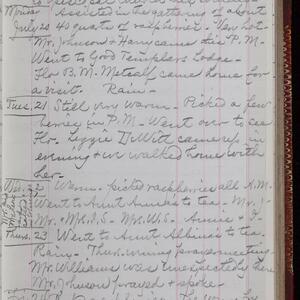 Mon.
Assisted in the gathering of about
July 20 40 quarts of raspberries. Very hot.
Mr. Johnson & Harry came this P.M.
Went to Good Templars Lodge.
Flo B. M. Metcalf came home for
a visit. Rain -
Tues. 21 Still very warm. Picked a few
berries in P.M. Went over to see
Flo. Lizzie DeWitt came up in
evening & we walked home with
her -
Wed. 22 Warm - picked raspberries all A.M.
Went to Aunt to tea - Mr. J -
Mr. & Mrs. W.S. Annie & F.
Thurs. 23 Went to Aunt Albina's to tea.
Rain - Thurs. evening prayer meeting
Mr. Williams was unexpectedly here
Mr. Johnson prayed & spoke -